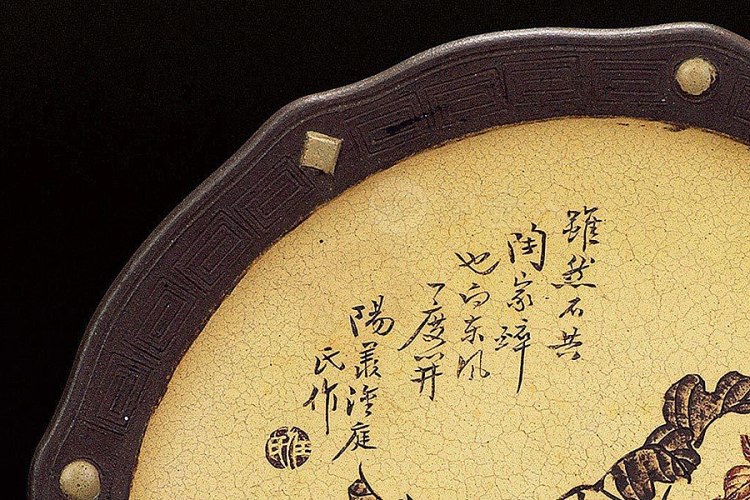 雖然不共
陶家醉
也向東風
度開
陽羨淦庭
氏作